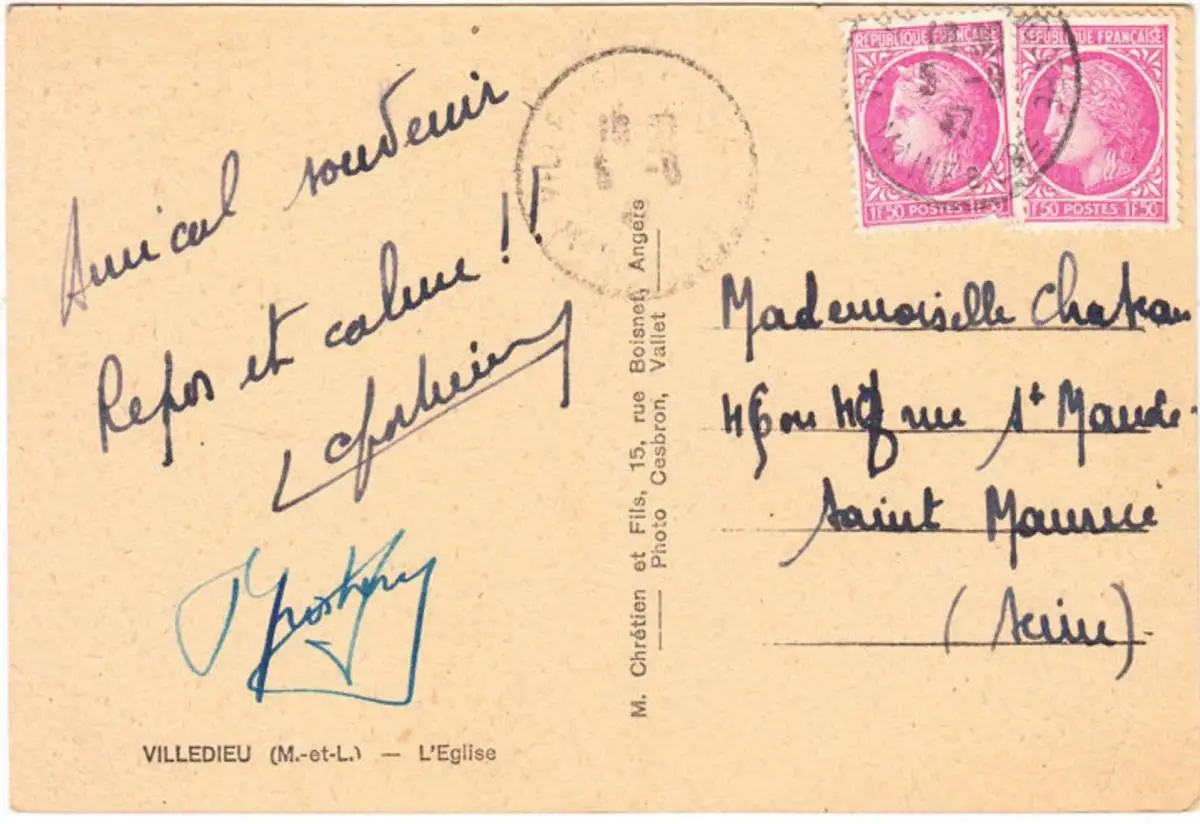 Amical souvenir
Repos et calme !!
VILLEDIEU (M.-et-L.) — L'Eglise
M. Chrétien et Fils, 15, rue Boisnet, Angers
Photo Cesbron, Vallet
RÉPUBLIQUE FRANÇAISE
1F50 POSTES
RÉPUBLIQUE FRANÇAISE
1F50 POSTES 1F50
Mademoiselle Chateau
46 ou 48 rue St Mandé
Saint Maurice
(Seine)